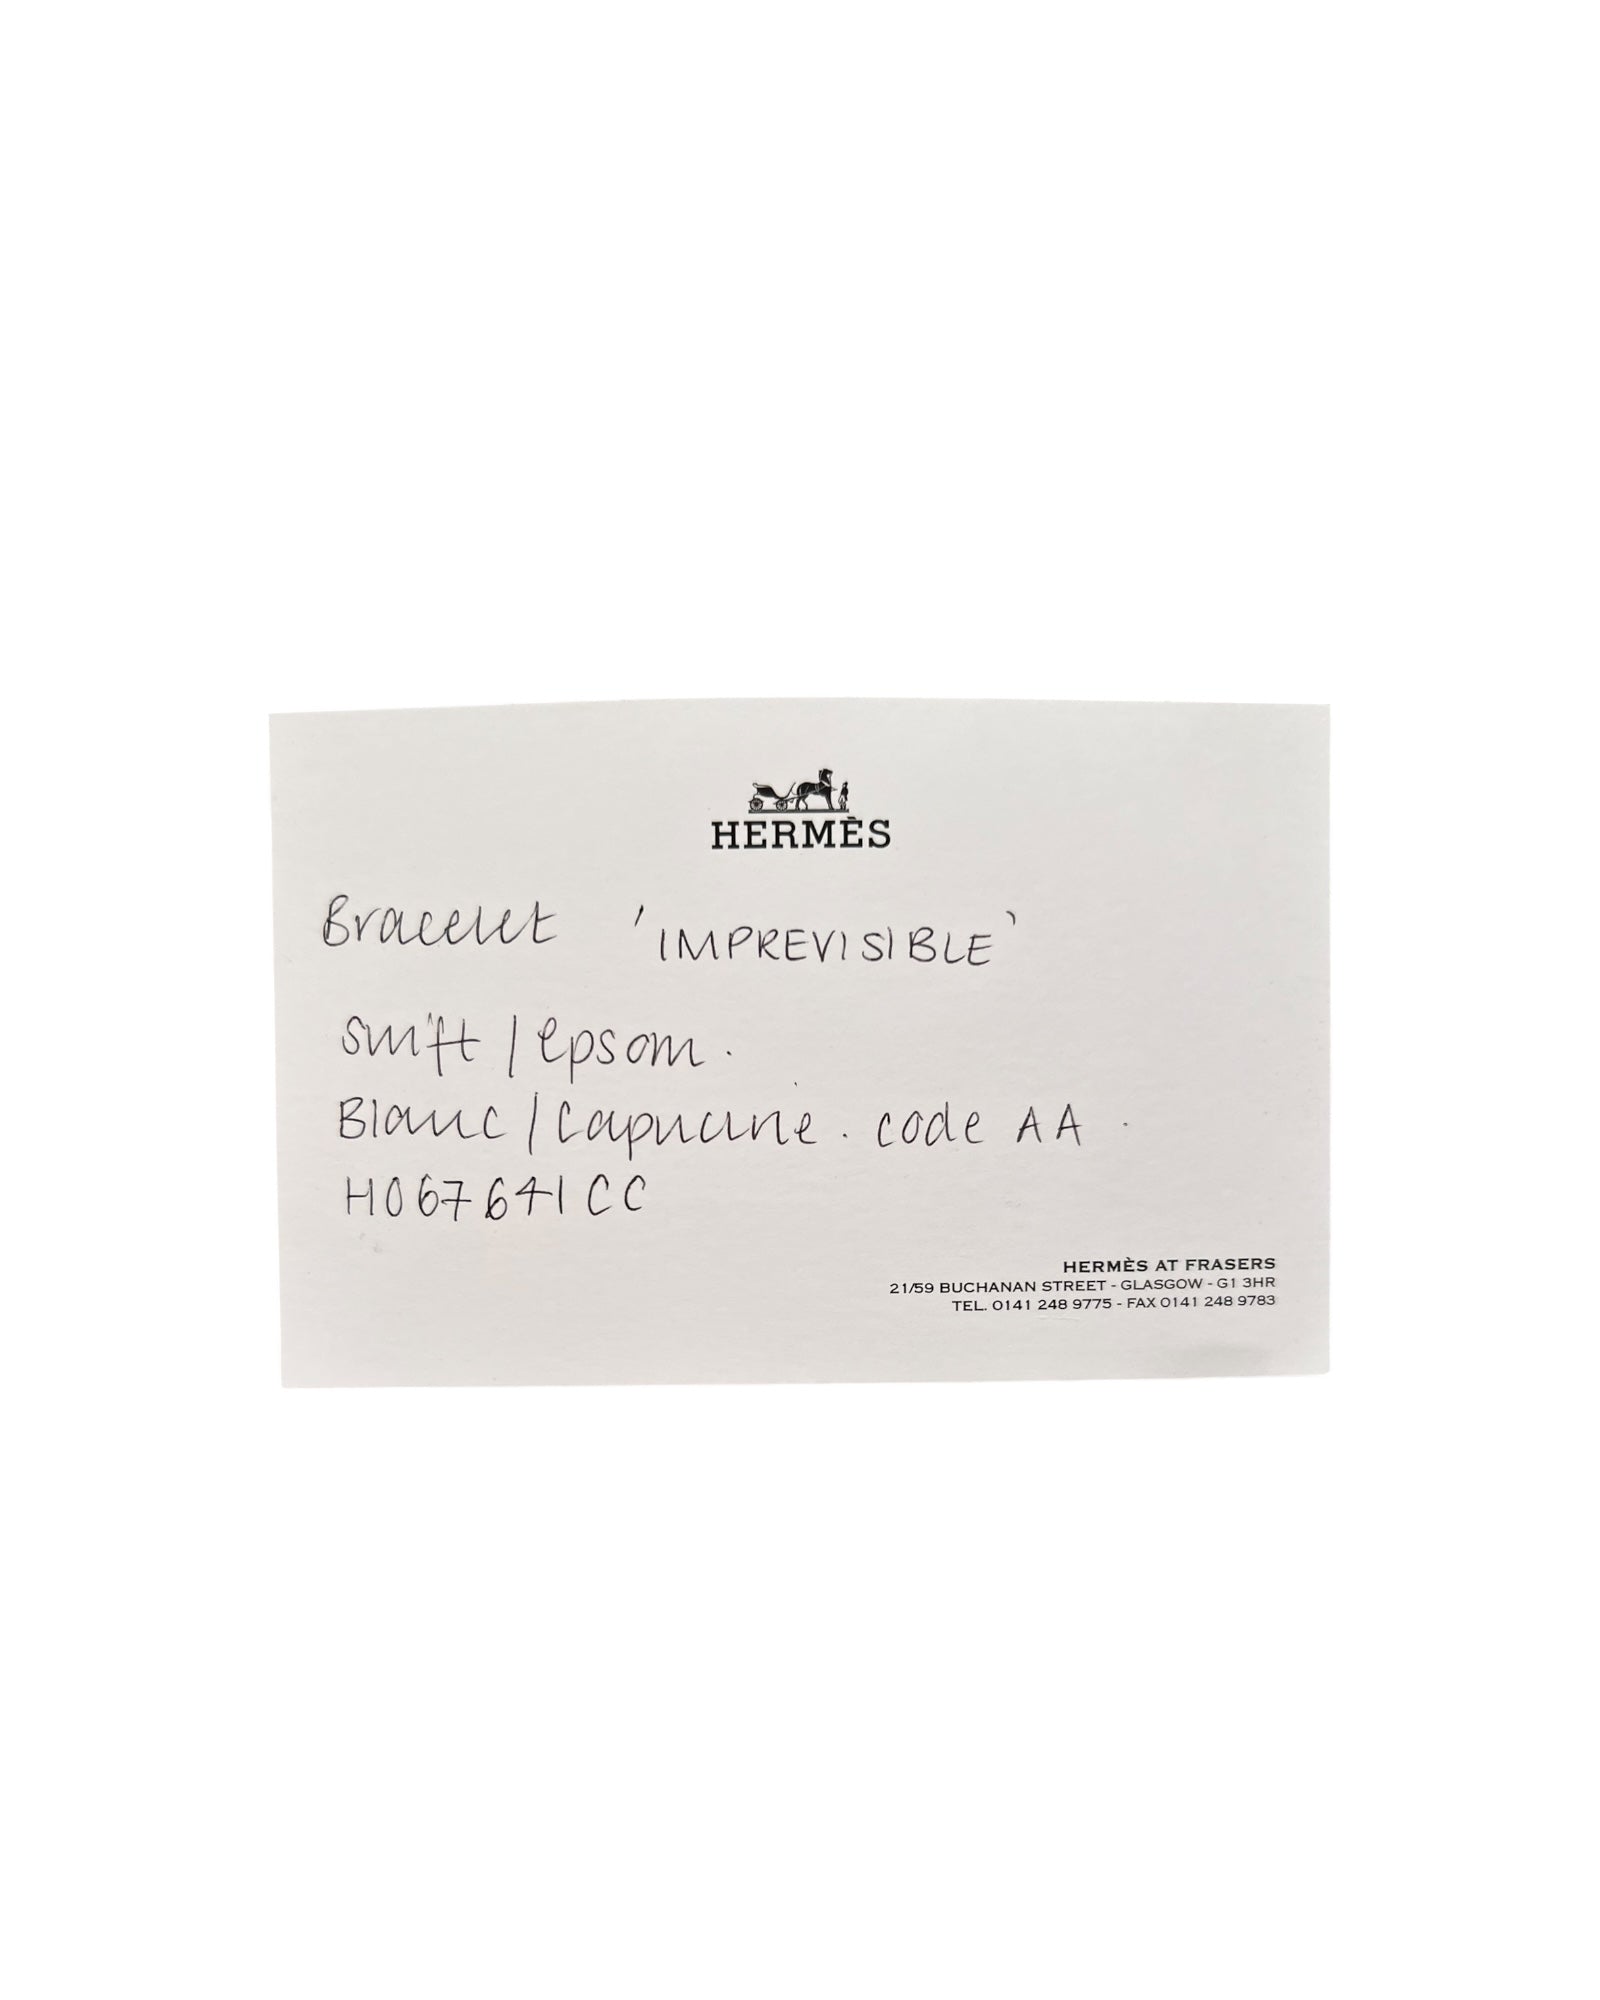 HERMÈS
Bracelet 'IMPREVISIBLE'
Swift / epsom.
Blanc / Capucine. code AA.
H067641CC
HERMÈS AT FRASERS
21/59 BUCHANAN STREET - GLASGOW - G1 3HR
TEL. 0141 248 9775 - FAX 0141 248 9783